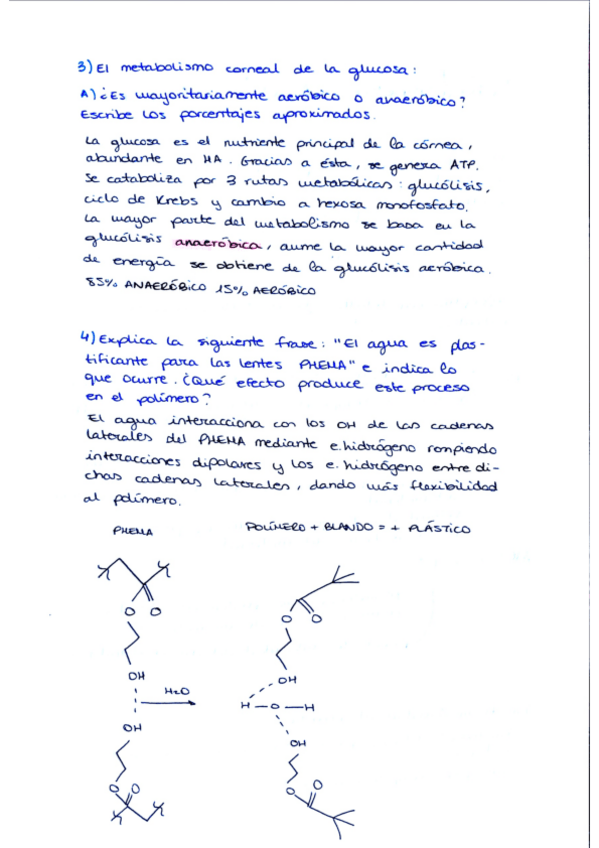 3) El metabolismo corneal de la glucosa:
A) ¿Es mayoritariamente aeróbico o anaeróbico?
Escribe los porcentajes aproximados.
La glucosa es el nutriente principal de la córnea,
abundante en HA. Gracias a ésta, se genera ATP.
Se cataboliza por 3 rutas metabólicas: glucólisis,
ciclo de Krebs y cambio a hexosa monofosfato.
La mayor parte del metabolismo se basa en la
glucólisis anaeróbica, aunque la mayor cantidad
de energía se obtiene de la glucólisis aeróbica.
85% ANAERÓBICO 15% AERÓBICO
4) Explica la siguiente frase: "El agua es plas-
tificante para las lentes PHEMA" e indica lo
que ocurre. ¿Qué efecto produce este proceso
en el polímero?
El agua interacciona con los OH de las cadenas
laterales del PHEMA mediante e.hidrógeno rompiendo
interacciones dipolares y los e. hidrógeno entre di-
chas cadenas laterales, dando más flexibilidad
al polímero.
PHEMA POLÍMERO + BLANDO = + PLÁSTICO
O O
O O
OH
OH
H2O
H-O-H
OH
OH
O O
O O